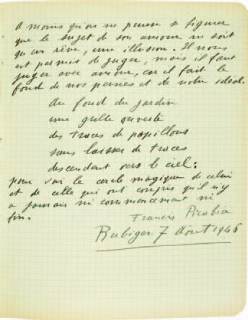 à moins qu'on ne pense à figurer
que le sujet de son amour ne soit
qu'un rêve, une illusion. Il nous
est permis de juger, mais il faut
juger avec amour, car il fait le
fond de nos pensées et de notre idéal.
Au fond du jardin
une grille ouverte
des traces de papillons
sans laisser de traces
descendant vers le ciel;
pour voir le cercle magique de celui
et de celle qui ont compris qu'il n'y
a jamais ni commencement ni
fin.
Francis Picabia
Rubigen 7 Août 1946